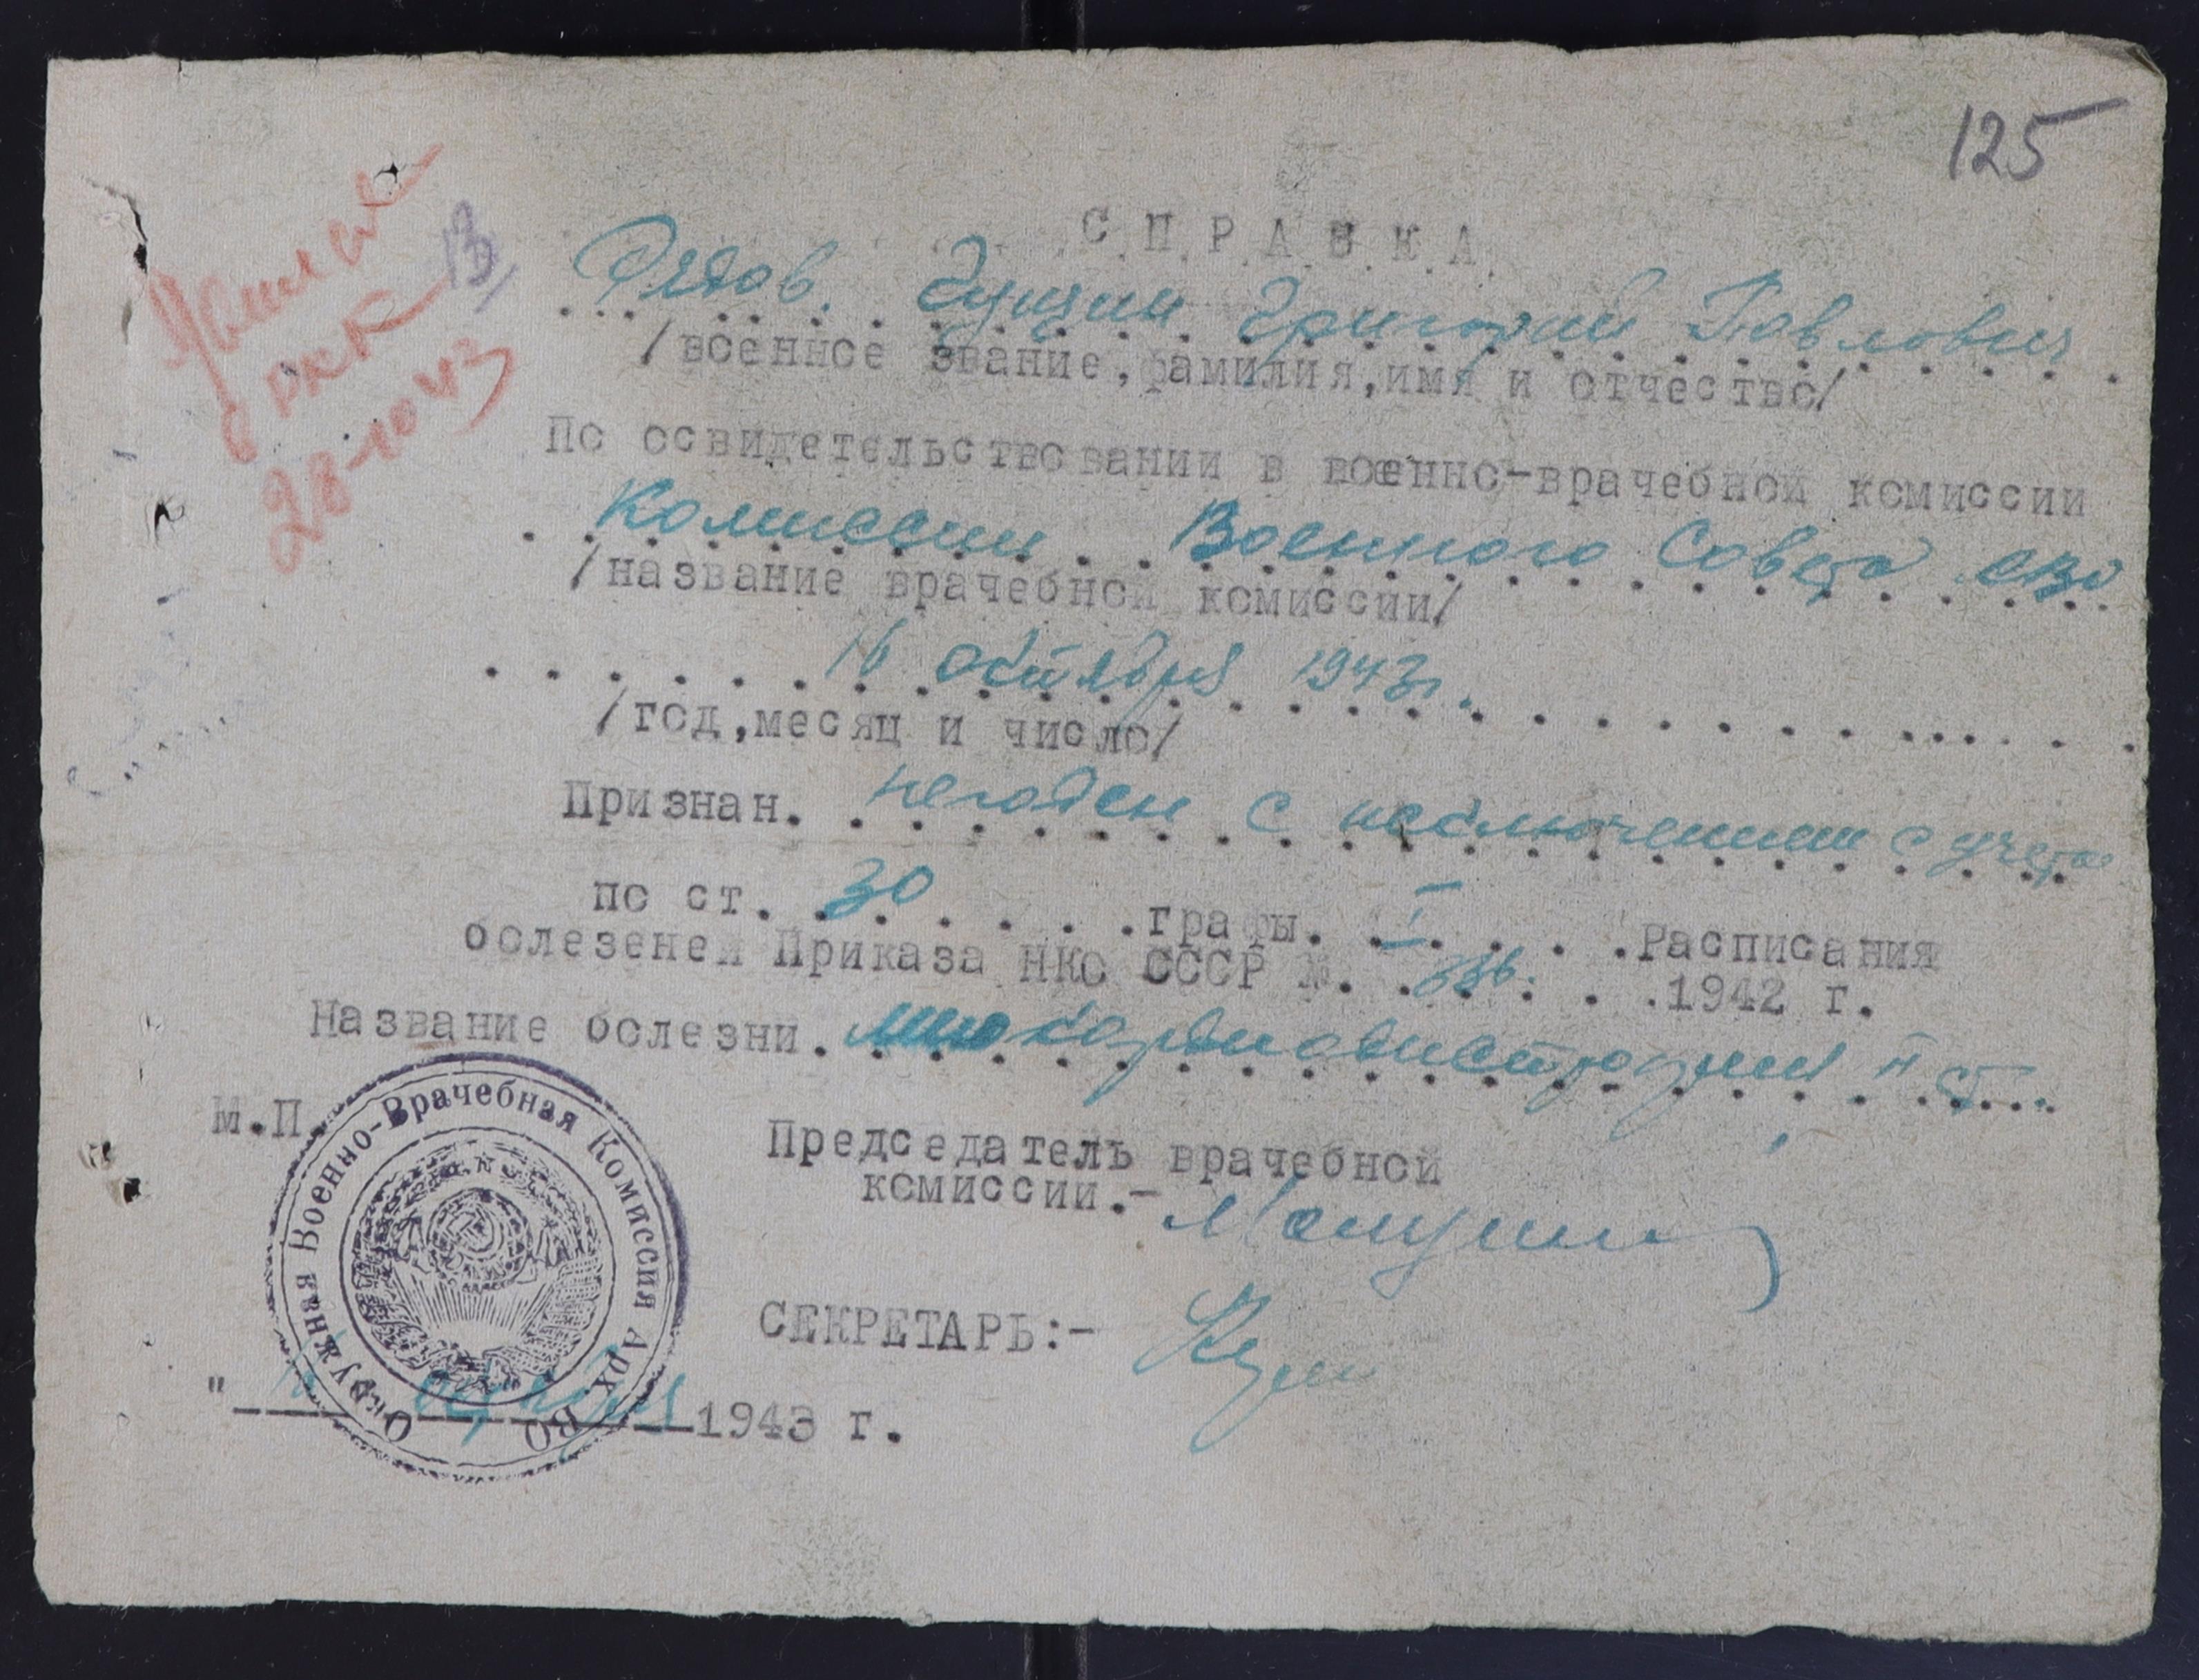 125
в РККА
28-10 43
С П Р А В К А
Рядов. Гущин Григорий Павлович
/военное звание, фамилия, имя и отчество/
По освидетельствовании в военно-врачебной комиссии
Комиссии Военного Совета
/название врачебной комиссии/
16 октября 1943г.
/год, месяц и число/
Признан. негоден с исключением с учета
по ст. 30 . . . . .графы. I . . . .Расписания
болезеней Приказа НКО СССР №. 336. . . .1942 г.
Название болезни. миокардиодистрофия II ст.
М.П.
Окружная Военно-Врачебная Комиссия Арх. ВО
Председатель врачебной
комиссии.-
СЕКРЕТАРЬ:-
" 16 октября 1943 г.